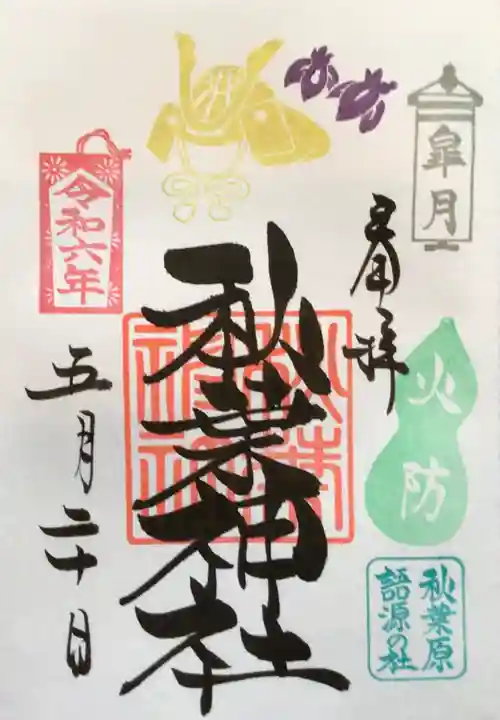 皐月
奉拝
火防
秋葉原
語源の社
秋葉神社
令和六年
五月二十日